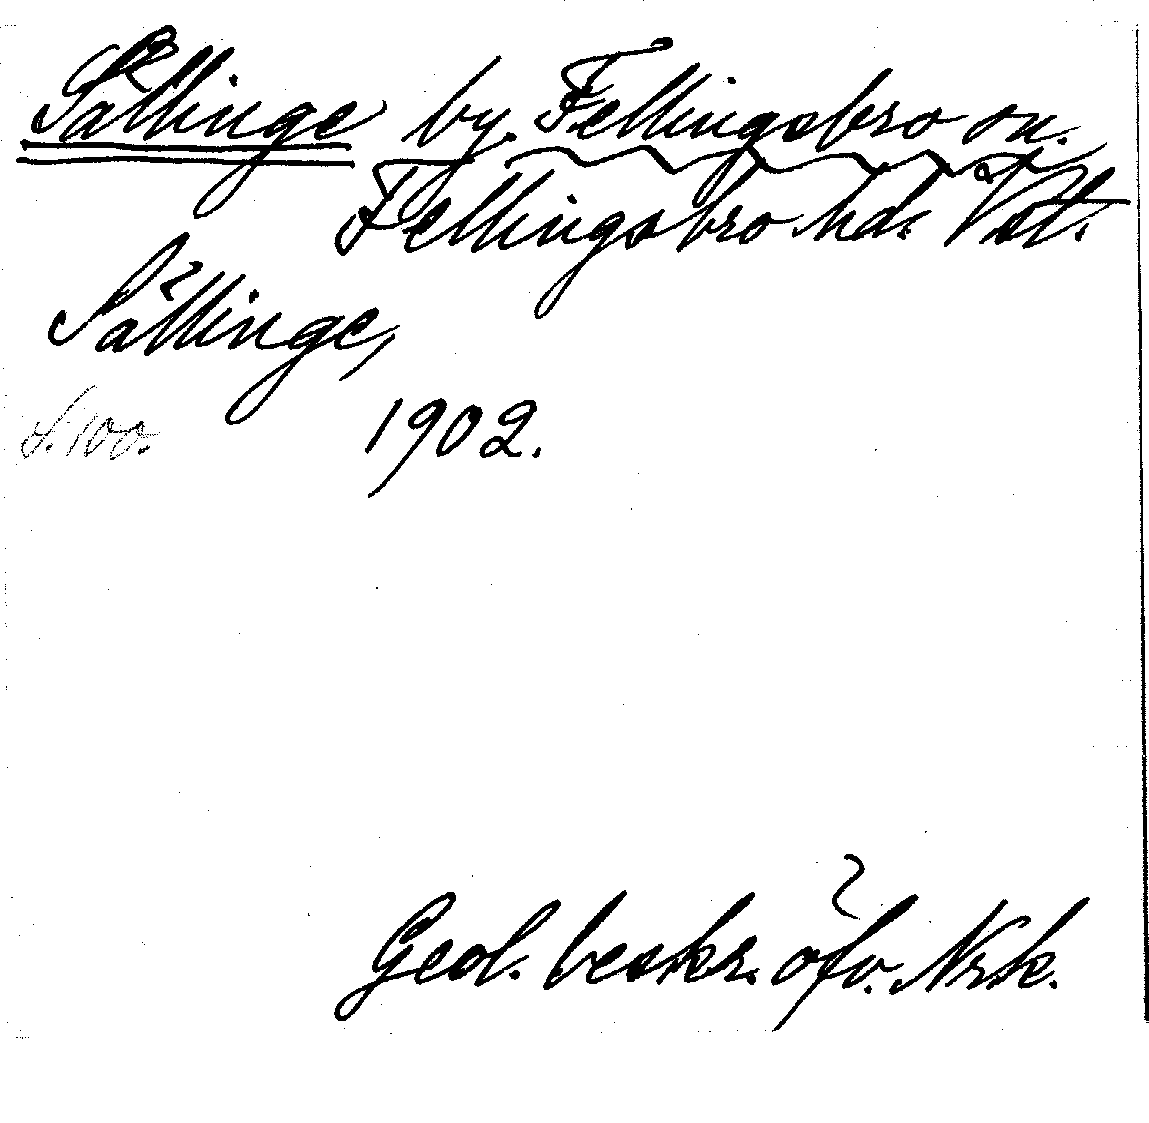 Sällinge by. Fellingsbro sn.
Fellingsbro hd. Vstl.
Sällinge,
S. 100. 1902.
Geol. beskr. öfv. Nrk.